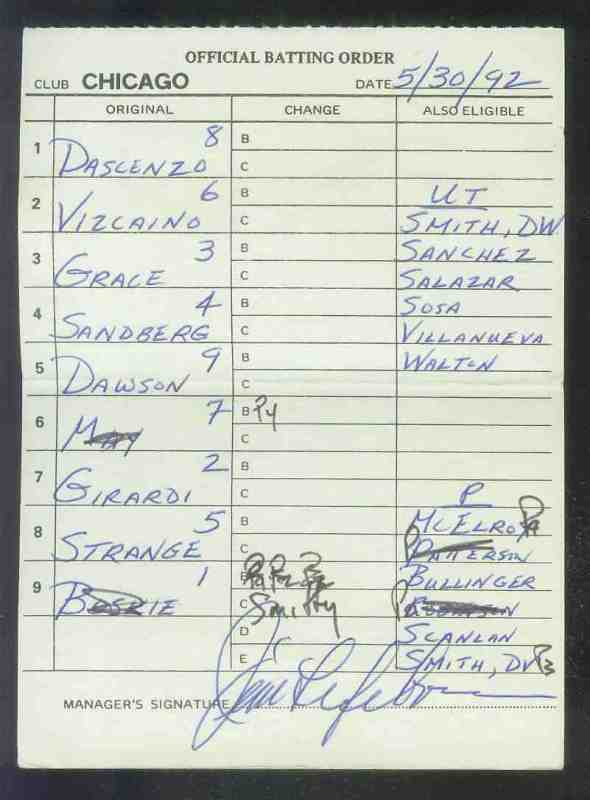 OFFICIAL BATTING ORDER
CLUB CHICAGO DATE 5/30/92
ORIGINAL CHANGE ALSO ELIGIBLE
1 DASCENZO 8 B C
2 VIZCAINO 6 B C UT SMITH, DW
3 GRACE 3 B C SANCHEZ SALAZAR
4 SANDBERG 4 B C SOSA VILLANUEVA
5 DAWSON 9 B C WALTON
6 MAY 7 B C
7 GIRARDI 2 B C P
8 STRANGE 5 B C MCELROY PATTERSON
9 BOSKIE 1 B C Smitty BULLINGER
D SCANLAN
E SMITH, DV
MANAGER'S SIGNATURE Jim Lefebvre